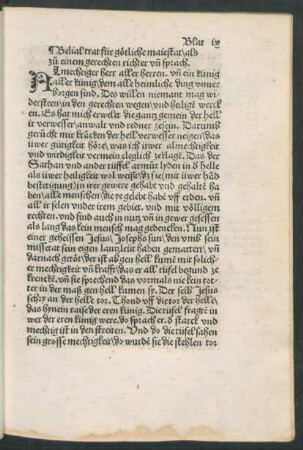 Blat ix
¶ Belial trat für götliche maiestat/ als
zů einem gerechten richter vñ sprach.
Almechtiger herr aller herren. vñ ein künig
aller künig/ dem alle heimliche ding vnuer
borgen sind. Des willen niemant mag wi
dersteen/ in den gerechten wegen/ vnd heiligē werck
en. Es hat mich erwelet die gantz gemein der helle
ir verweser/ anwalt vnd redner zesein. Darumb
gerücht mir kracker der hell verweser neigen/ das
iwer gütigkeit höre/ was ich iwer almechtigkeit
vnd wirdigkeit vermein cleglich zeklagē. Das der
Sathan vnd ander tüffel armůt lyden in d̛ helle
als iwer heiligkeit wol weißt/ dz sie/ mit iwer hād
bestetigung/ in irer gewere gehabt vnd gehaltē ha
ben/ alle menschen/ die ye gelebt habē vff erden. vñ
in all ir selen vnder irem gebiet. vnd mit völligem
rechten. vnd sind auch in nutz vñ in gewer gesessen
als lang das kein mensch mag gedencken. Nun ist
einer geheissen Jesus/ Josephs sun/ den vmb sein
missetat sein eigen lantzleüt haben gemartert/ vñ
darnach getöt/ der ist ab gen hell kumē mit solich
er mechtigkeit vñ krafft/ das er all tüfel begund ze
krencke. vñ sie sprechend das vormals nie kein tot
ter in der maß gen hell kumen sy. Der selb Jesus
schry an der helle tor. Thond vff die tor der helle/
das hynein raise der eren künig. Die tüfel fragtē in
wer der eren künig were. do sprach er. d̛ starck vnd
mechtig ist in den streiten. Vnd do die tüfel sahen
sein grosse mechtigkeit/ do wurdē sie die stehlen tor